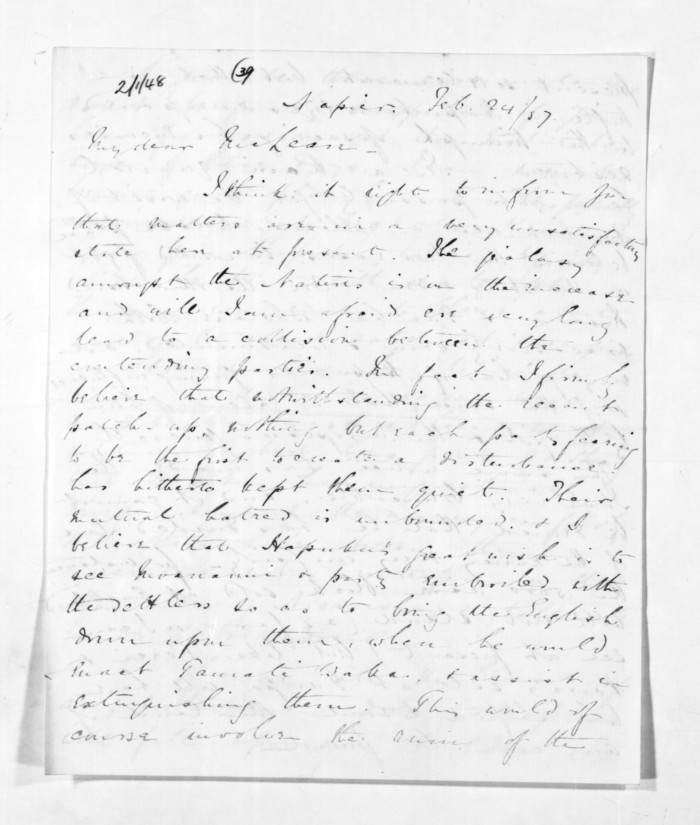 2/1/48
39
Napier, Feb. 24/57.
My dear McLean -
I think it right to inform you
that matters are in a very unsatisfactory
state here at present. The jealousy
amongst the Natives is on the increase
and will I am afraid ere very long
lead to a collision between the
contending parties. In fact I firmly
believe that notwithstanding the recent
patch up, nothing but each party fearing
to be the first to create a disturbance
has hitherto kept them quiet. Their
mutual hatred is unbounded, & I
believe that Hapuku's great wish is to
see Moananui & party embroiled with
the settlers so as to bring the English
down upon them, when he would
enact Tamati Waka, & assist in
extinguishing them. This would of
course involve the ruin of the